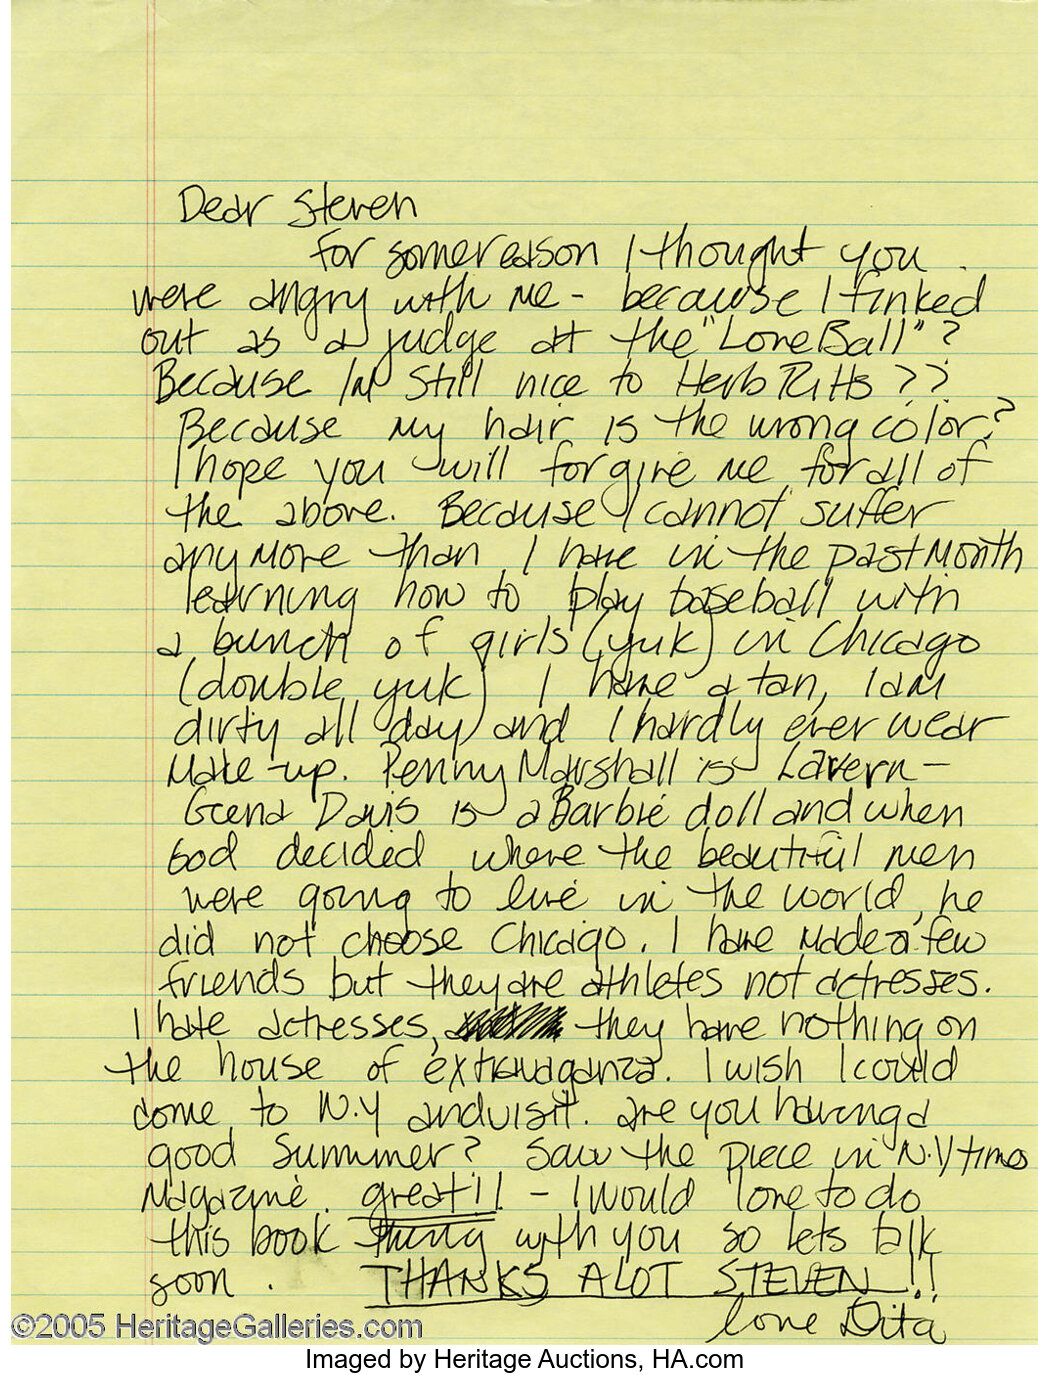 Dear Steven
for some reason I thought you
were angry with me - because I finked
out as a judge at the "Love Ball"?
Because I'm still nice to Herb Ritts??
Because my hair is the wrong color?
I hope you will forgive me for all of
the above. Because I cannot suffer
any more than I have in the past month
learning how to play baseball with
a bunch of girls (yuk) in Chicago
(double yuk) I have a tan, I am
dirty all day and I hardly ever wear
make-up. Penny Marshall is Lavern -
Geena Davis is a Barbie doll and when
God decided where the beautiful men
were going to live in the world, he
did not choose Chicago. I have made a few
friends but they are athletes not actresses.
I hate actresses, they have nothing on
the house of extravaganza. I wish I could
come to N.Y and visit. are you having a
good summer? Saw the piece in N.Y times
Magazine. great!! - I would love to do
this book thing with you so lets talk
soon. THANKS ALOT STEVEN!!
love Dita
©2005 HeritageGalleries.com
Imaged by Heritage Auctions, HA.com